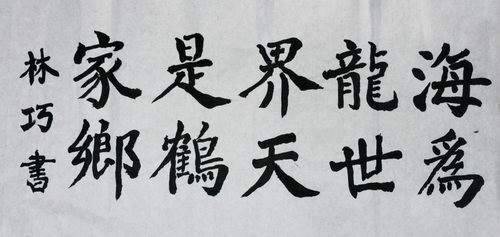 海為
龍世
界天
是鶴
家鄉
林巧書